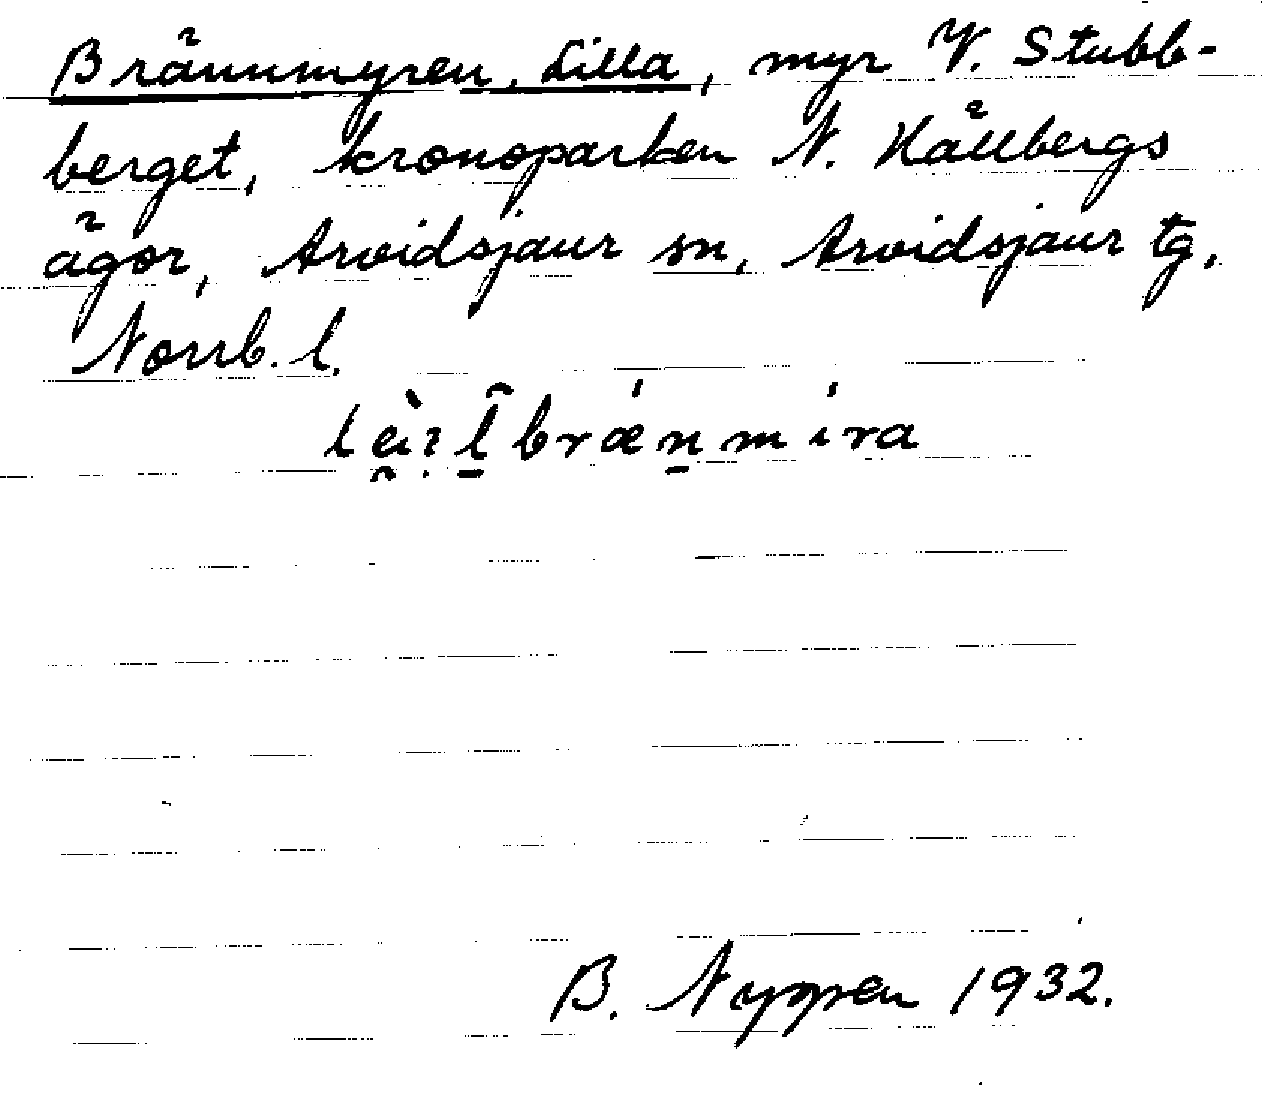 Brännmyren, Lilla, myr V. Stubb-
berget, kronoparken N. Hällbergs
ägor, Arvidsjaur sn, Arvidsjaur tg,
Norrb. l.
B. Nyppen 1932.